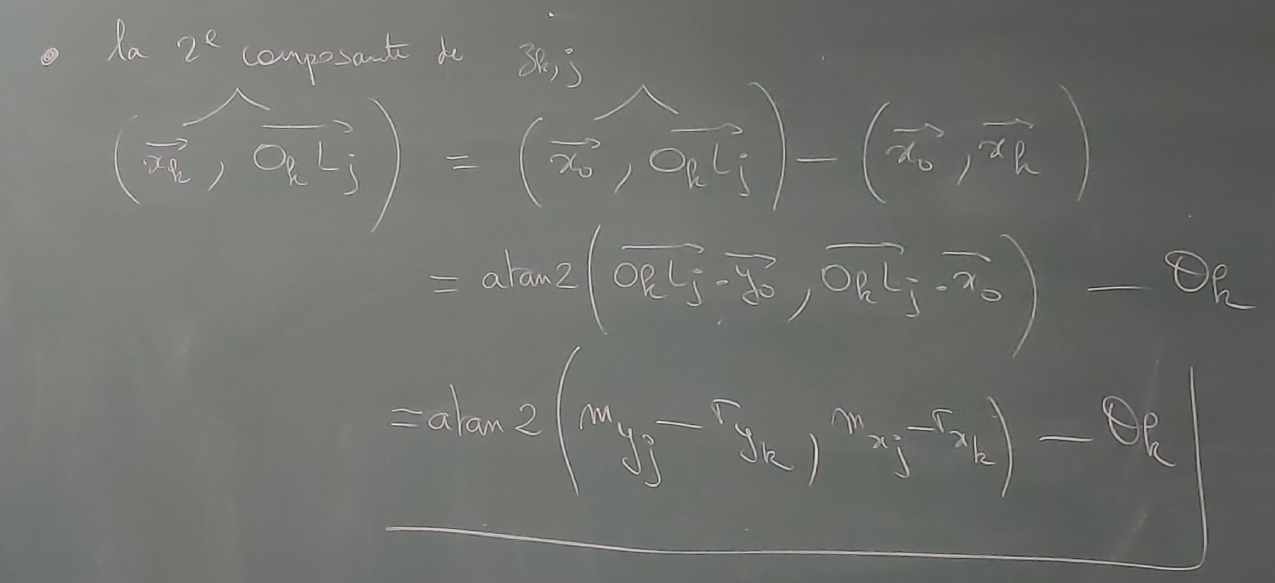 • la 2e composante de zk,j
(xk→, OkLj→) = (x0→, OkLj→) − (x0→, xk→)
= atan2(OkLj→ · y0→, OkLj→ · x0→) − θk
= atan2(myj − ryk, mxj − rxk) − θk